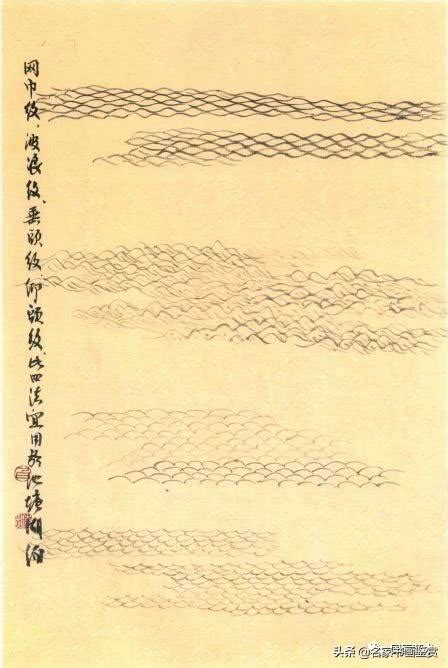 网巾纹、波浪纹、垂頭纹、仰頭纹、此四法宜用於池塘湖泊
头条 @名家书画鉴赏